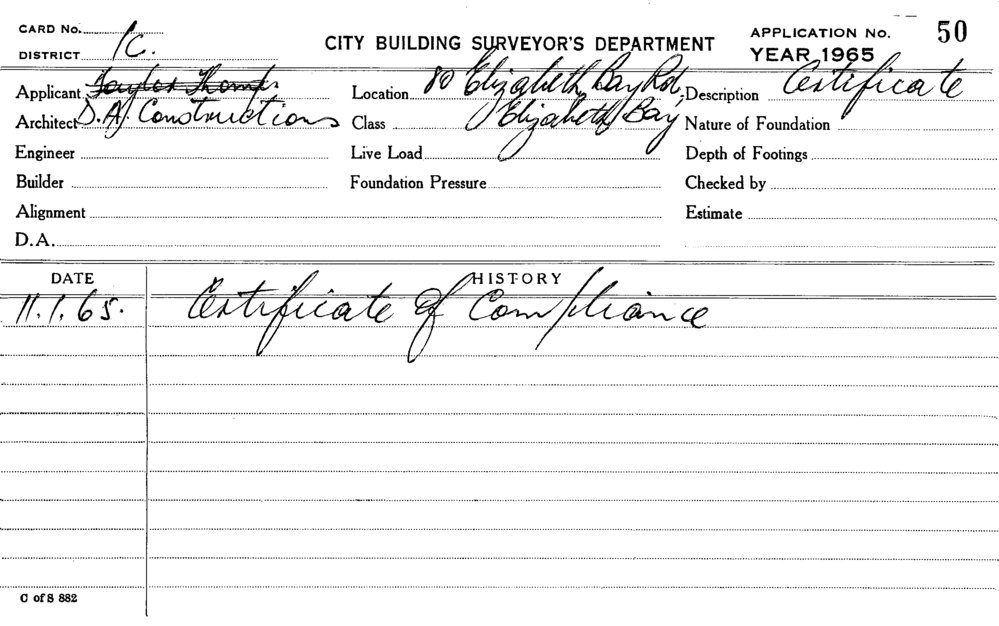 CARD No.
DISTRICT 1C.
CITY BUILDING SURVEYOR'S DEPARTMENT
APPLICATION No. 50
YEAR 1965
Applicant Taylor Thomps.
Location 80 Elizabeth Bay Rd,
Description Certificate
Architect D.A. Constructions
Class Elizabeth Bay
Nature of Foundation
Engineer
Live Load
Depth of Footings
Builder
Foundation Pressure
Checked by
Alignment
Estimate
D.A.
DATE HISTORY
11.1.65. Certificate of Compliance
C of S 882